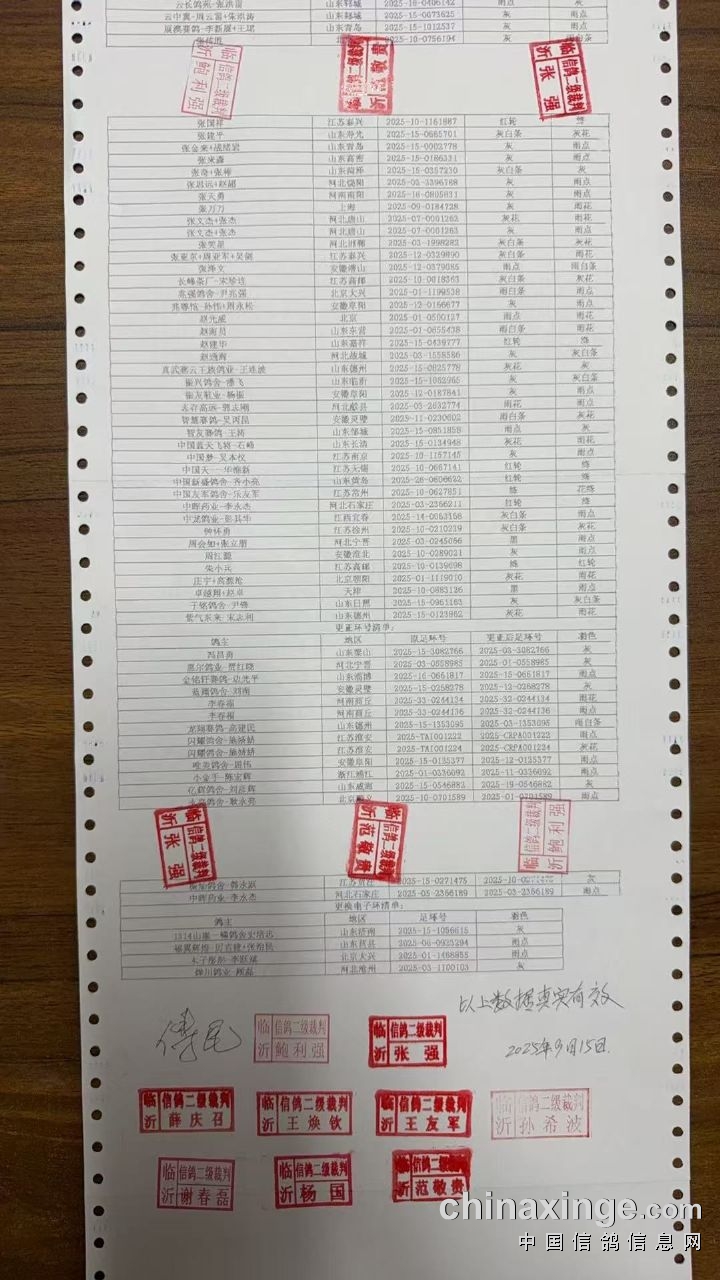 云长鸽苑-张洪雷 山东郓城 2025-16-0406142 雨点
云中寞-周云雷+朱洪涛 山东郓城 2025-15-0073625 灰 雨点
展澳赛鸽-李新展+王珺 山东青岛 2025-15-1012537 灰 雨点
2025-10-0756194 灰 雨白条
临沂 信鸽二级裁判 鲍利强
临沂 信鸽二级裁判 范敬贵
临沂 信鸽二级裁判 张强
张国祥 江苏泰兴 2025-10-1161887 红轮 绛
张建平 山东寿光 2025-15-0665701 灰白条 灰花
张金来+战绪岩 山东青岛 2025-15-0002778 灰 雨点
张来鑫 山东高密 2025-15-0186331 灰 雨点
山东菏泽 2025-15-0357230 灰白条 灰
张思远+赵韶 河北饶阳 灰 雨点
张天勇 河南南阳 2025-16-0805831 灰 雨点
张万力 上海 2025-09-0184728 灰 雨花
张文杰+张杰 河北唐山 2025-07-0001262 灰花 雨花
张文杰+张杰 河北唐山 2025-07-0001263 灰 雨点
张笑星 河北邯郸 2025-03-1998282 灰白条 灰花
张亚东+周亚军+吴剑 江苏泰兴 2025-12-0329890 灰白条 雨花
张泽文 安徽萧山 2025-12-0379085 雨点 雨白条
长峰茶厂-宋珍连 江苏高邮 2025-10-0018363 灰白条 灰花
兆强鸽舍-尹兆强 北京大兴 2025-01-1199538 雨白条 雨点
兆尊馆-孙伟+周永松 安徽阜阳 2025-12-0166677 灰 雨点
赵光威 北京 2025-01-0500127 雨点 雨花
赵海员 山东东营 2025-01-0655438 雨白条 雨花
赵建华 山东嘉祥 2025-15-0439777 红轮 绛
赵逸海 河北故城 2025-03-1558586 灰 灰白条
真武赛云王族鸽业-王连波 山东德州 2025-15-0825778 灰花 灰
振兴鸽舍-潘飞 山东临沂 2025-15-1052965 灰 灰白条
振友鞋业-杨振 安徽阜阳 2025-12-0187841 灰 雨点
志存高远-郭志刚 河北献县 2025-03-2632774 雨点 雨花
智慧赛鸽-吴丙昆 安徽灵璧 2025-11-0230602 雨白条 灰花
智友赛鸽-王涛 山东邹城 2025-15-0851858 雨点 灰
中国蓝天飞将-石峰 山东长清 2025-15-0134948 灰花 雨花
中国梦-吴本仪 江苏南京 2025-10-1157145 灰 雨点
中国天一-华维新 江苏无锡 2025-10-0657141 红轮 绛
中国新盛鸽舍-齐小亮 山东黄岛 2025-26-0606622 红轮 绛
中国友军鸽舍-乐友军 江苏常州 2025-10-0627851 绛 花绛
中晖药业-李永杰 河北石家庄 2025-03-2356211 红轮 绛
中龙鸽业-彭其华 江西宜春 2025-14-0053158 灰白条 雨点
钟怀勇 江苏徐州 2025-10-0210239 灰白条 灰花
周会如+张立朋 河北宁晋 2025-03-0245066 黑 雨点
周红鹏 安徽淮北 2025-10-0289021 灰 雨点
朱小兵 江苏高邮 2025-10-0139698 绛 红轮
庄宁+高源沧 北京朝阳 2025-01-1119010 灰花 雨花
卓越翔+赵卓 天津 2025-10-0883126 黑 雨点
于铭鸽舍-尹锋 山东日照 2025-15-0961163 灰 灰白条
紫气东来-宋志利 山东德州 2025-15-0123962 灰花 雨花
更正环号清单:
鸽主 地区 原足环号 更正后足环号 羽色
冯昌勇 山东梁山 2025-15-3082766 2025-03-3082766 灰
惠尔鸽业-贾红晓 河北宁晋 2025-03-0558985 2025-01-0558985 灰
金铭轩赛鸽-边光平 山东淄博 2025-16-0651817 2025-15-0651817 雨点
蓝翔鸽舍-刘南 安徽灵璧 2025-15-0268278 2025-12-0268278 灰
李春福 河南商丘 2025-33-0244134 2025-32-0244134 雨花
李春福 河南商丘 2025-33-0244136 2025-32-0244136 雨点
龙翔赛鸽-高建民 山东德州 2025-15-1353095 2025-03-1353095 雨白条
闪耀鸽舍-施婧婧 江苏淮安 2025-TAI001222 2025-CRPA001222 雨点
闪耀鸽舍-施婧婧 江苏淮安 2025-TAI001224 2025-CRPA001224 灰花
唯美鸽舍-周伟 安徽阜阳 2025-15-0135377 2025-12-0135377 雨点
小金子-陈宏辉 浙江浦江 2025-01-0336092 2025-11-0336092 雨点
亿辉鸽舍-刘彦辉 山东威海 2025-15-0546882 2025-19-0546882 灰
永亮鸽舍-耿永亮 北京顺义 2025-10-0701589 2025-01-0701589 雨点
临沂 信鸽二级裁判 张强
临沂 信鸽二级裁判 范敬贵
临沂 信鸽二级裁判 鲍利强
2025-15-0271475 灰
中晖药业-李永杰 河北石家庄 2025-05-2356189 2025-03-2356189 雨点
更换电子环清单:
鸽主 地区 足环号 羽色
山东济南 2025-15-1056615 灰
山东莒县 2025-06-0925294 雨点
北京大兴 2025-01-1468855 雨点
锦川鸽业-顾磊 河北沧州 2025-03-1100103 灰
以上数据真实有效
2025年9月15日.
临沂 信鸽二级裁判 鲍利强
临沂 信鸽二级裁判 张强
临沂 信鸽二级裁判 薛庆召
临沂 信鸽二级裁判 王焕钦
临沂 信鸽二级裁判 王友军
临沂 信鸽二级裁判 孙希波
临沂 信鸽二级裁判 谢春磊
临沂 信鸽二级裁判 杨国
临沂 信鸽二级裁判 范敬贵
chinaxinge.com
中国信鸽信息网